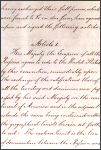 having exchanged their full powers, which
were found to be in due form, have agreed
upon and signed the following articles
Article I.
His Majesty the Emperor of all the
Russias agrees to cede to the United States
by this convention, immediately upon
the exchange of the ratifications
all the territory and dominion now
possessed by his said Majesty on the
continent of America and in the adjacent
islands, the same being contained within
the geographical limits herein set forth,
to wit: The eastern limit is the line
of demarcation between the Russian and